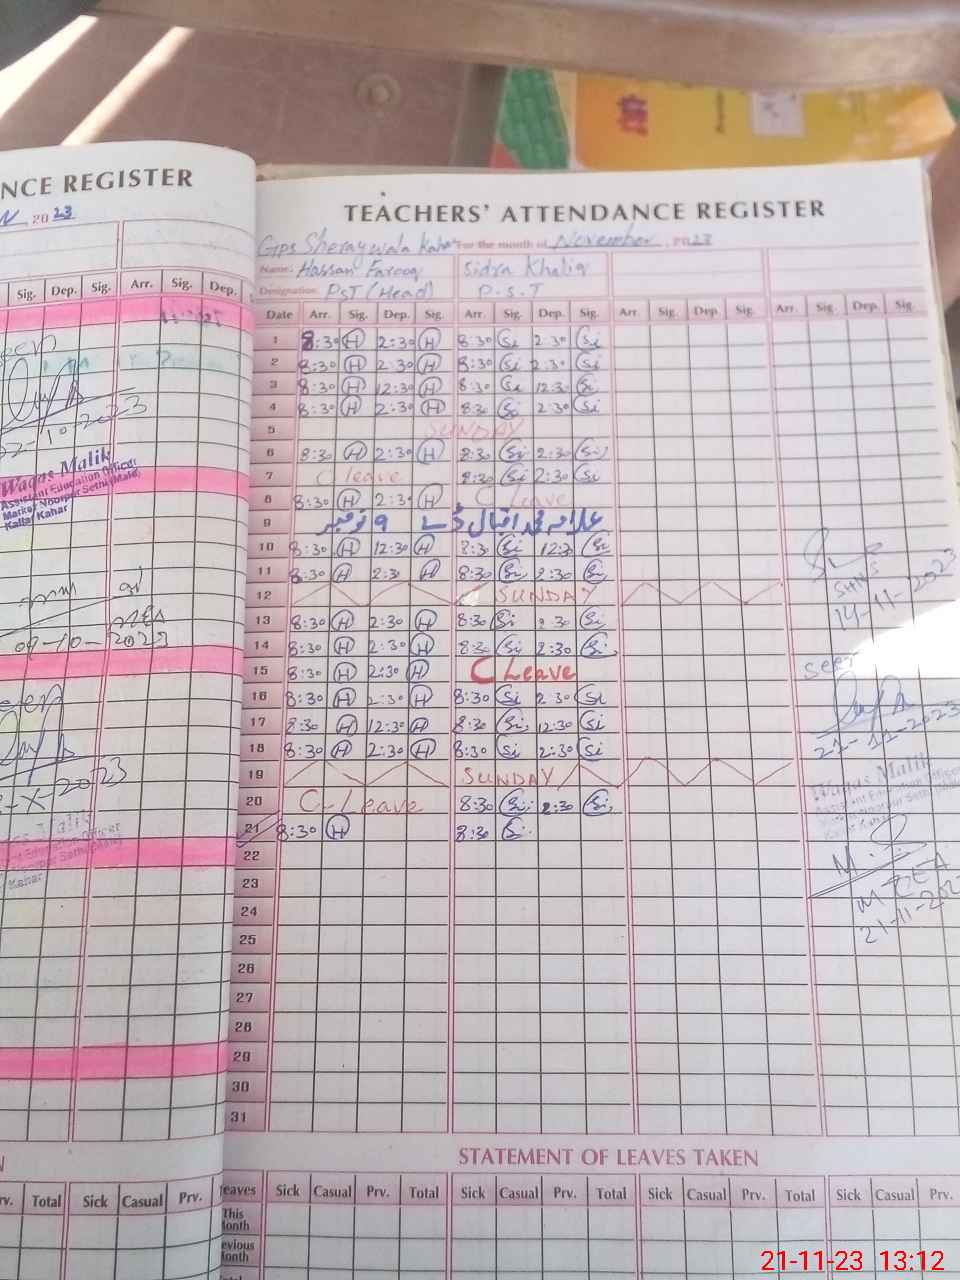 NCE REGISTER
2023
Sig. Dep. Sig. Arr. Sig. Dep.
02-10-2023
Waqas Malik
Assistant Education Officer
Markaz Noorpur Sethi (Male)
Kallar Kahar
09-10-2023
-X-2023
Kahar
TEACHERS' ATTENDANCE REGISTER
GPS Sheraywala Kahar For the month of November, 2023
Name: Hassan Farooq Sidra Khaliq
Designation: PST (Head) P.S.T
Date Arr. Sig. Dep. Sig. Arr. Sig. Dep. Sig. Arr. Sig. Dep Sig. Arr. Sig. Dep. Sig.
1 8:30 H 2:30 H 8:30 Si 2:30 Si
2 8:30 H 2:30 H 8:30 Si 2:30 Si
3 8:30 H 12:30 H 8:30 Si 12:30 Si
4 8:30 H 2:30 H 8:30 Si 2:30 Si
5 SUNDAY
6 8:30 H 2:30 H 8:30 Si 2:30 Si
7 C leave 8:30 Si 2:30 Si
8 8:30 H 2:30 H C leave
9 علامہ محمد اقبال ڈے 9 نومبر
10 8:30 H 12:30 H 8:30 Si 12:30 Si
11 8:30 H 2:30 H 8:30 Si 2:30 Si
12 SUNDAY
13 8:30 H 2:30 H 8:30 Si 2:30 Si
14 8:30 H 2:30 H 8:30 Si 2:30 Si
15 8:30 H 2:30 H C Leave
16 8:30 H 2:30 H 8:30 Si 2:30 Si
17 8:30 H 12:30 H 8:30 Si 12:30 Si
18 8:30 H 2:30 H 8:30 Si 2:30 Si
19 SUNDAY
20 C-Leave 8:30 Si 2:30 Si
21 8:30 H 8:30 Si
22
23
24
25
26
27
28
29
30
31
14-11-2023
Seen
21-11-2023
Waqas Malik
Assistant Education Officer
Kallar Kahar
21-11-2023
STATEMENT OF LEAVES TAKEN
rv. Total Sick Casual Prv.
eaves Sick Casual Prv. Total Sick Casual Prv. Total Sick Casual Prv. Total Sick Casual Prv.
This
Month
evious
Month
21-11-23 13:12